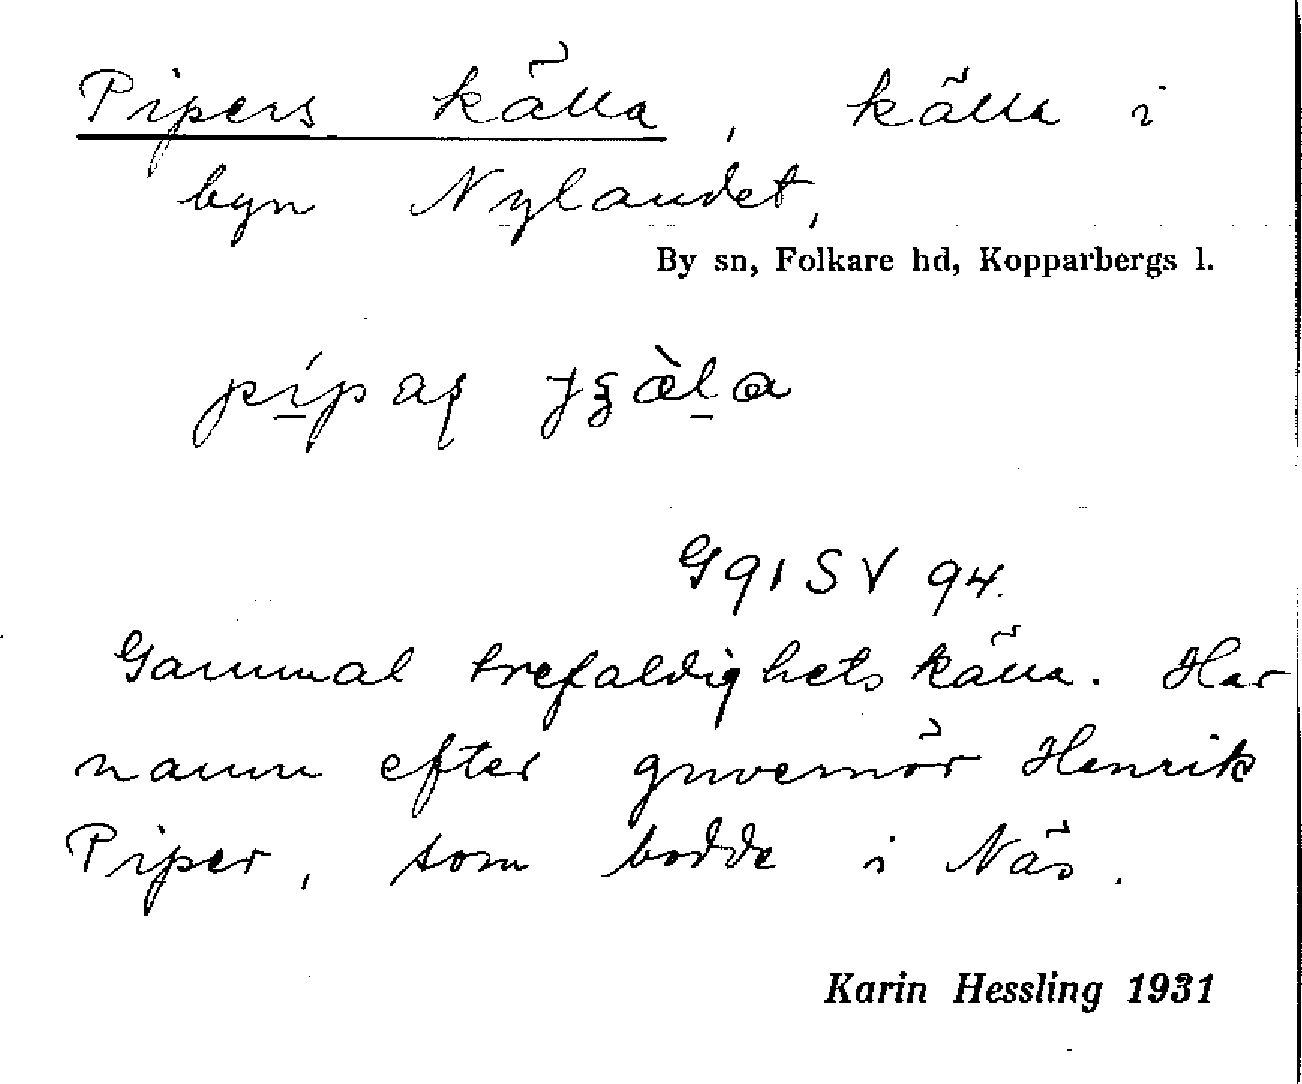 Pipers källa, källa i
byn Nylandet,
By sn, Folkare hd, Kopparbergs l.
G 91 S V 94.
Gammal trefaldighetskälla. Har
namn efter guvernör Henrik
Piper, som bodde i Näs.
Karin Hessling 1931